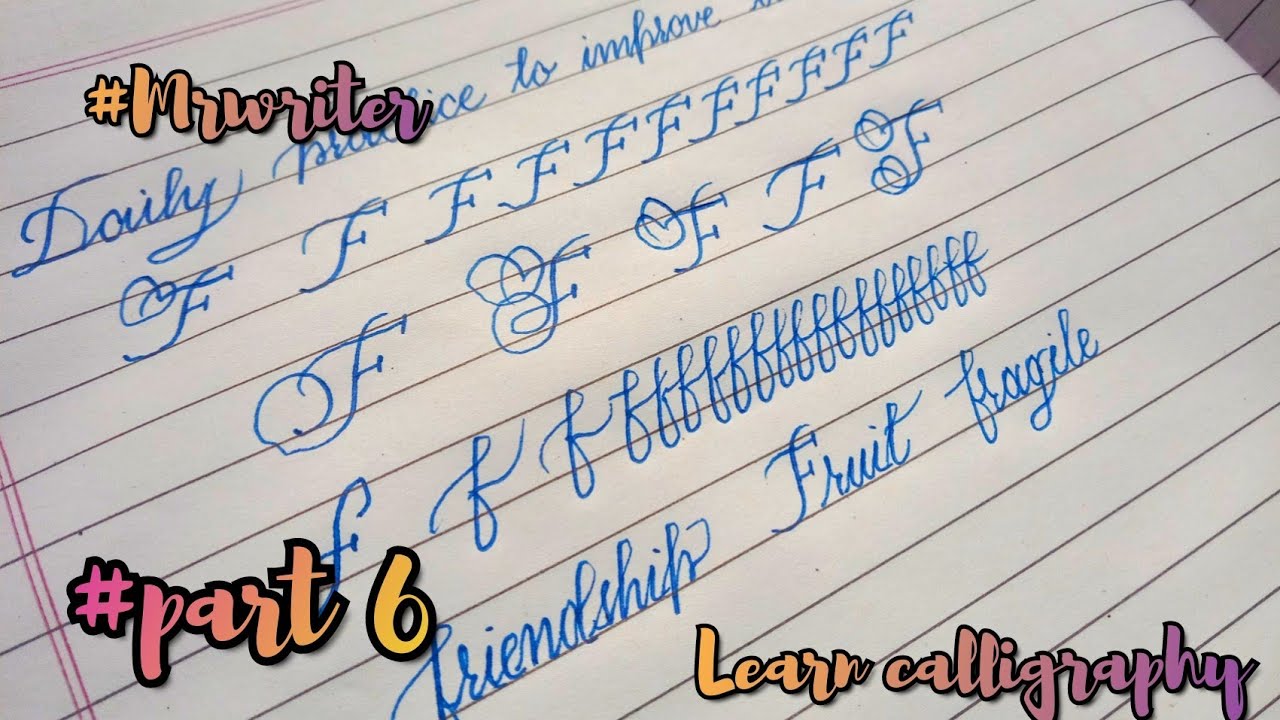 #Mrwriter
Daily practice to improve
F F F F F F F F F F F
F F F F F
f f f fffffffffffffffff
friendship Fruit fragile
#part 6
Learn calligraphy